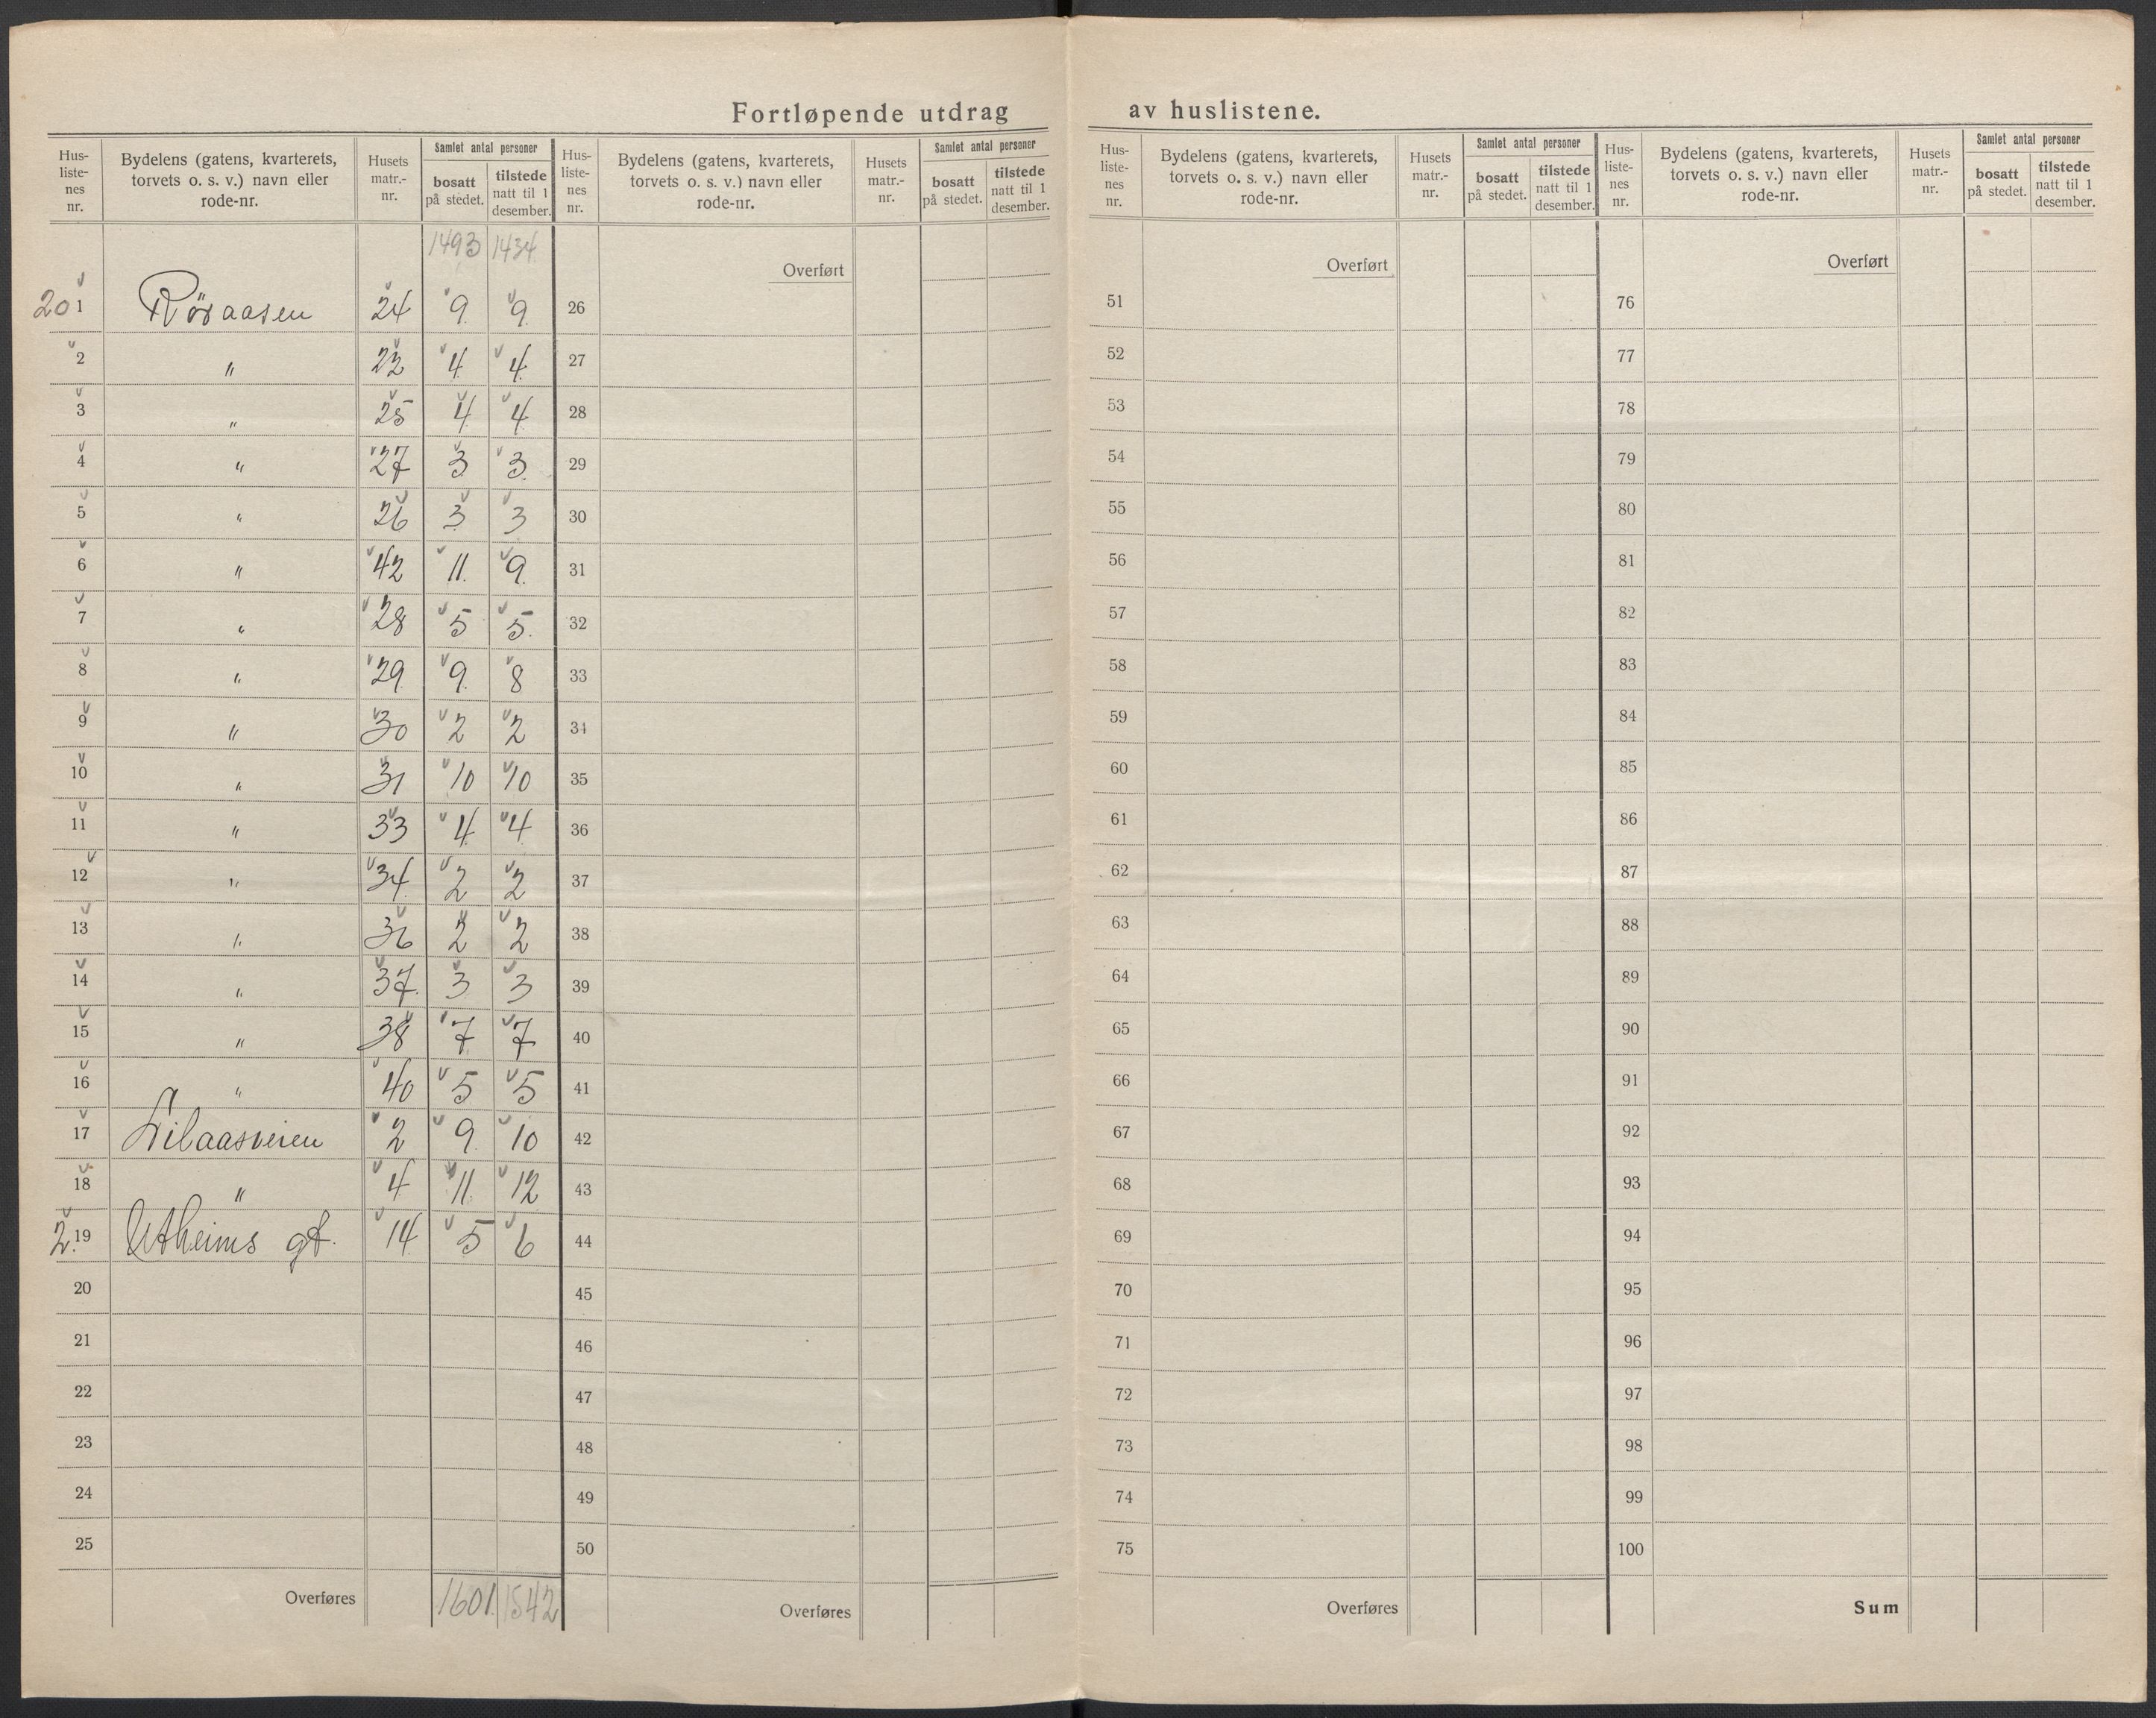 Fortløpende utdrag av huslistene.
Hus-liste-nes nr. | Bydelens (gatens, kvarterets, torvets o. s. v.) navn eller rode-nr. | Husets matr.-nr. | Samlet antal personer bosatt på stedet. | tilstede natt til 1 desember.
1493 1434
201 Røraasen 24 9. 9.
2 " 22 4. 4.
3 " 25 4 4
4 " 27 3 3.
5 " 26 3 3
6 " 42 11. 9.
7 " 28 5 5.
8 " 29 9. 8
9 " 30 2 2
10 " 31 10 10
11 " 33 4 4
12 " 34 2 2
13 " 36 2 2
14 " 37. 3 3
15 " 38 7 7
16 " 40 5 5
17 2 9. 10
18 " 4 11. 12
2. 19 gt. 14 5 6
20
21
22
23
24
25
Overføres 1601. 1542
Hus-liste-nes nr. | Bydelens (gatens, kvarterets, torvets o. s. v.) navn eller rode-nr. | Husets matr.-nr. | Samlet antal personer bosatt på stedet. | tilstede natt til 1 desember.
Overført
26
27
28
29
30
31
32
33
34
35
36
37
38
39
40
41
42
43
44
45
46
47
48
49
50
Overføres
Hus-liste-nes nr. | Bydelens (gatens, kvarterets, torvets o. s. v.) navn eller rode-nr. | Husets matr.-nr. | Samlet antal personer bosatt på stedet. | tilstede natt til 1 desember.
Overført
51
52
53
54
55
56
57
58
59
60
61
62
63
64
65
66
67
68
69
70
71
72
73
74
75
Overføres
Hus-liste-nes nr. | Bydelens (gatens, kvarterets, torvets o. s. v.) navn eller rode-nr. | Husets matr.-nr. | Samlet antal personer bosatt på stedet. | tilstede natt til 1 desember.
Overført
76
77
78
79
80
81
82
83
84
85
86
87
88
89
90
91
92
93
94
95
96
97
98
99
100
Sum